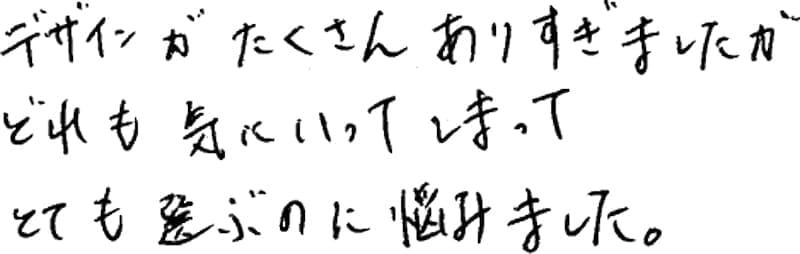 デザインがたくさんありすぎましたが
どれも気にいってしまって
とても選ぶのに悩みました。